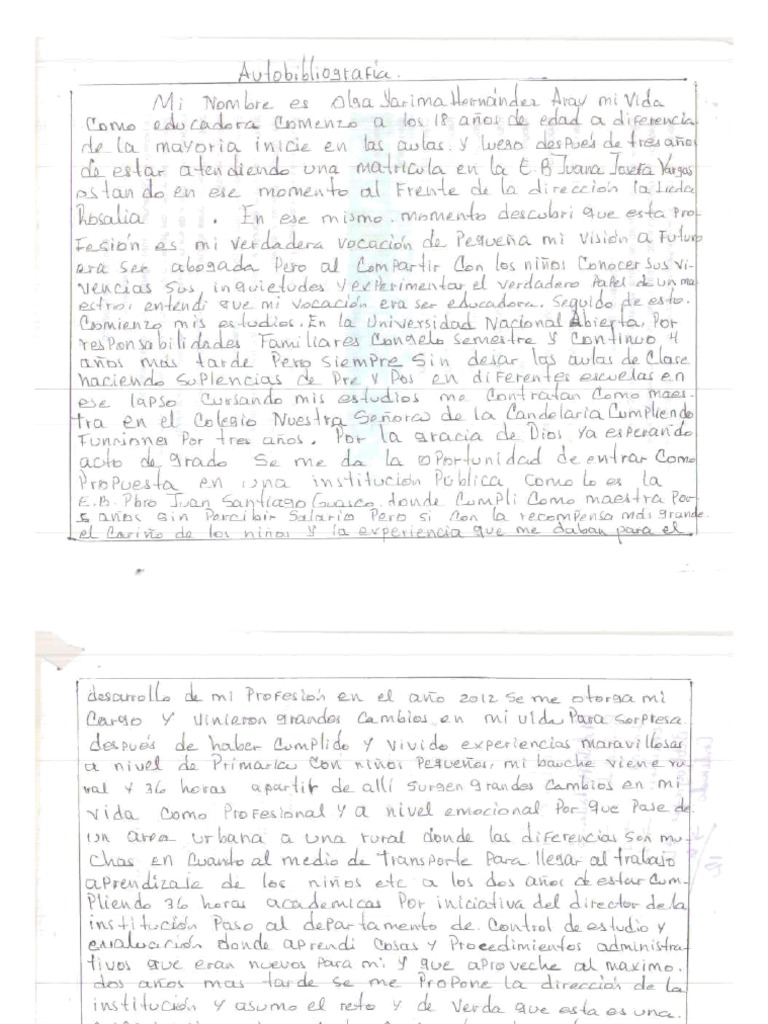 Autobibliografía.
Mi Nombre es Olga Yarima Hernández Aray mi vida
como educadora comenzo a los 18 años de edad a diferencia
de la mayoria inicie en las aulas. y luego después de tres años
de estar atendiendo una matricula en la E.B Juana Josefa Vargas
estando en ese momento al Frente de la dirección la Licda
Rosalia . En ese mismo momento descubri que esta pro-
Fesión es mi verdadera vocación de pequeña mi visión a Futuro
era ser abogada pero al compartir con los niños conocer sus vi-
vencias sus inquietudes y experimentar el verdadero papel de un ma-
estro, entendi que mi vocación era ser educadora. Seguido de esto.
Comienzo mis estudios. En la Universidad Nacional Abierta. Por
responsabilidades Familiares congelo semestre y continuo 4
años mas tarde pero siempre sin dejar las aulas de clase
haciendo suplencias de Pre y Pos en diferentes escuelas en
ese lapso cursando mis estudios me contratan como maes-
tra en el Colegio Nuestra Señora de la Candelaria cumpliendo
Funciones por tres años. Por la gracia de Dios ya esperando
acto de grado se me da la oportunidad de entrar como
propuesta en una institución pública como lo es la
E.B. Pbro Juan Santiago Guasco. donde cumpli como maestra por
5 años sin percibir salario pero si con la recompensa más grande.
el cariño de los niños y la experiencia que me daban para el
desarrollo de mi profesión en el año 2012 se me otorga mi
cargo y vinieron grandes cambios en mi vida para sorpresa
después de haber cumplido y vivido experiencias maravillosas
a nivel de primaria con niños pequeños, mi bauche viene ru-
ral y 36 horas a partir de allí surgen grandes cambios en mi
vida como profesional y a nivel emocional por que pase de
un area urbana a una rural donde las diferencias son mu-
chas en cuanto al medio de transporte para llegar al trabajo
aprendizaje de los niños etc a los dos años de estar cum-
pliendo 36 horas academicas por iniciativa del director de la
institución paso al departamento de control de estudio y
evaluación donde aprendi cosas y procedimientos administra-
tivos que eran nuevos para mi y que aproveche al maximo.
dos años mas tarde se me propone la dirección de la
institución y asumo el reto y de verda que esta es una.